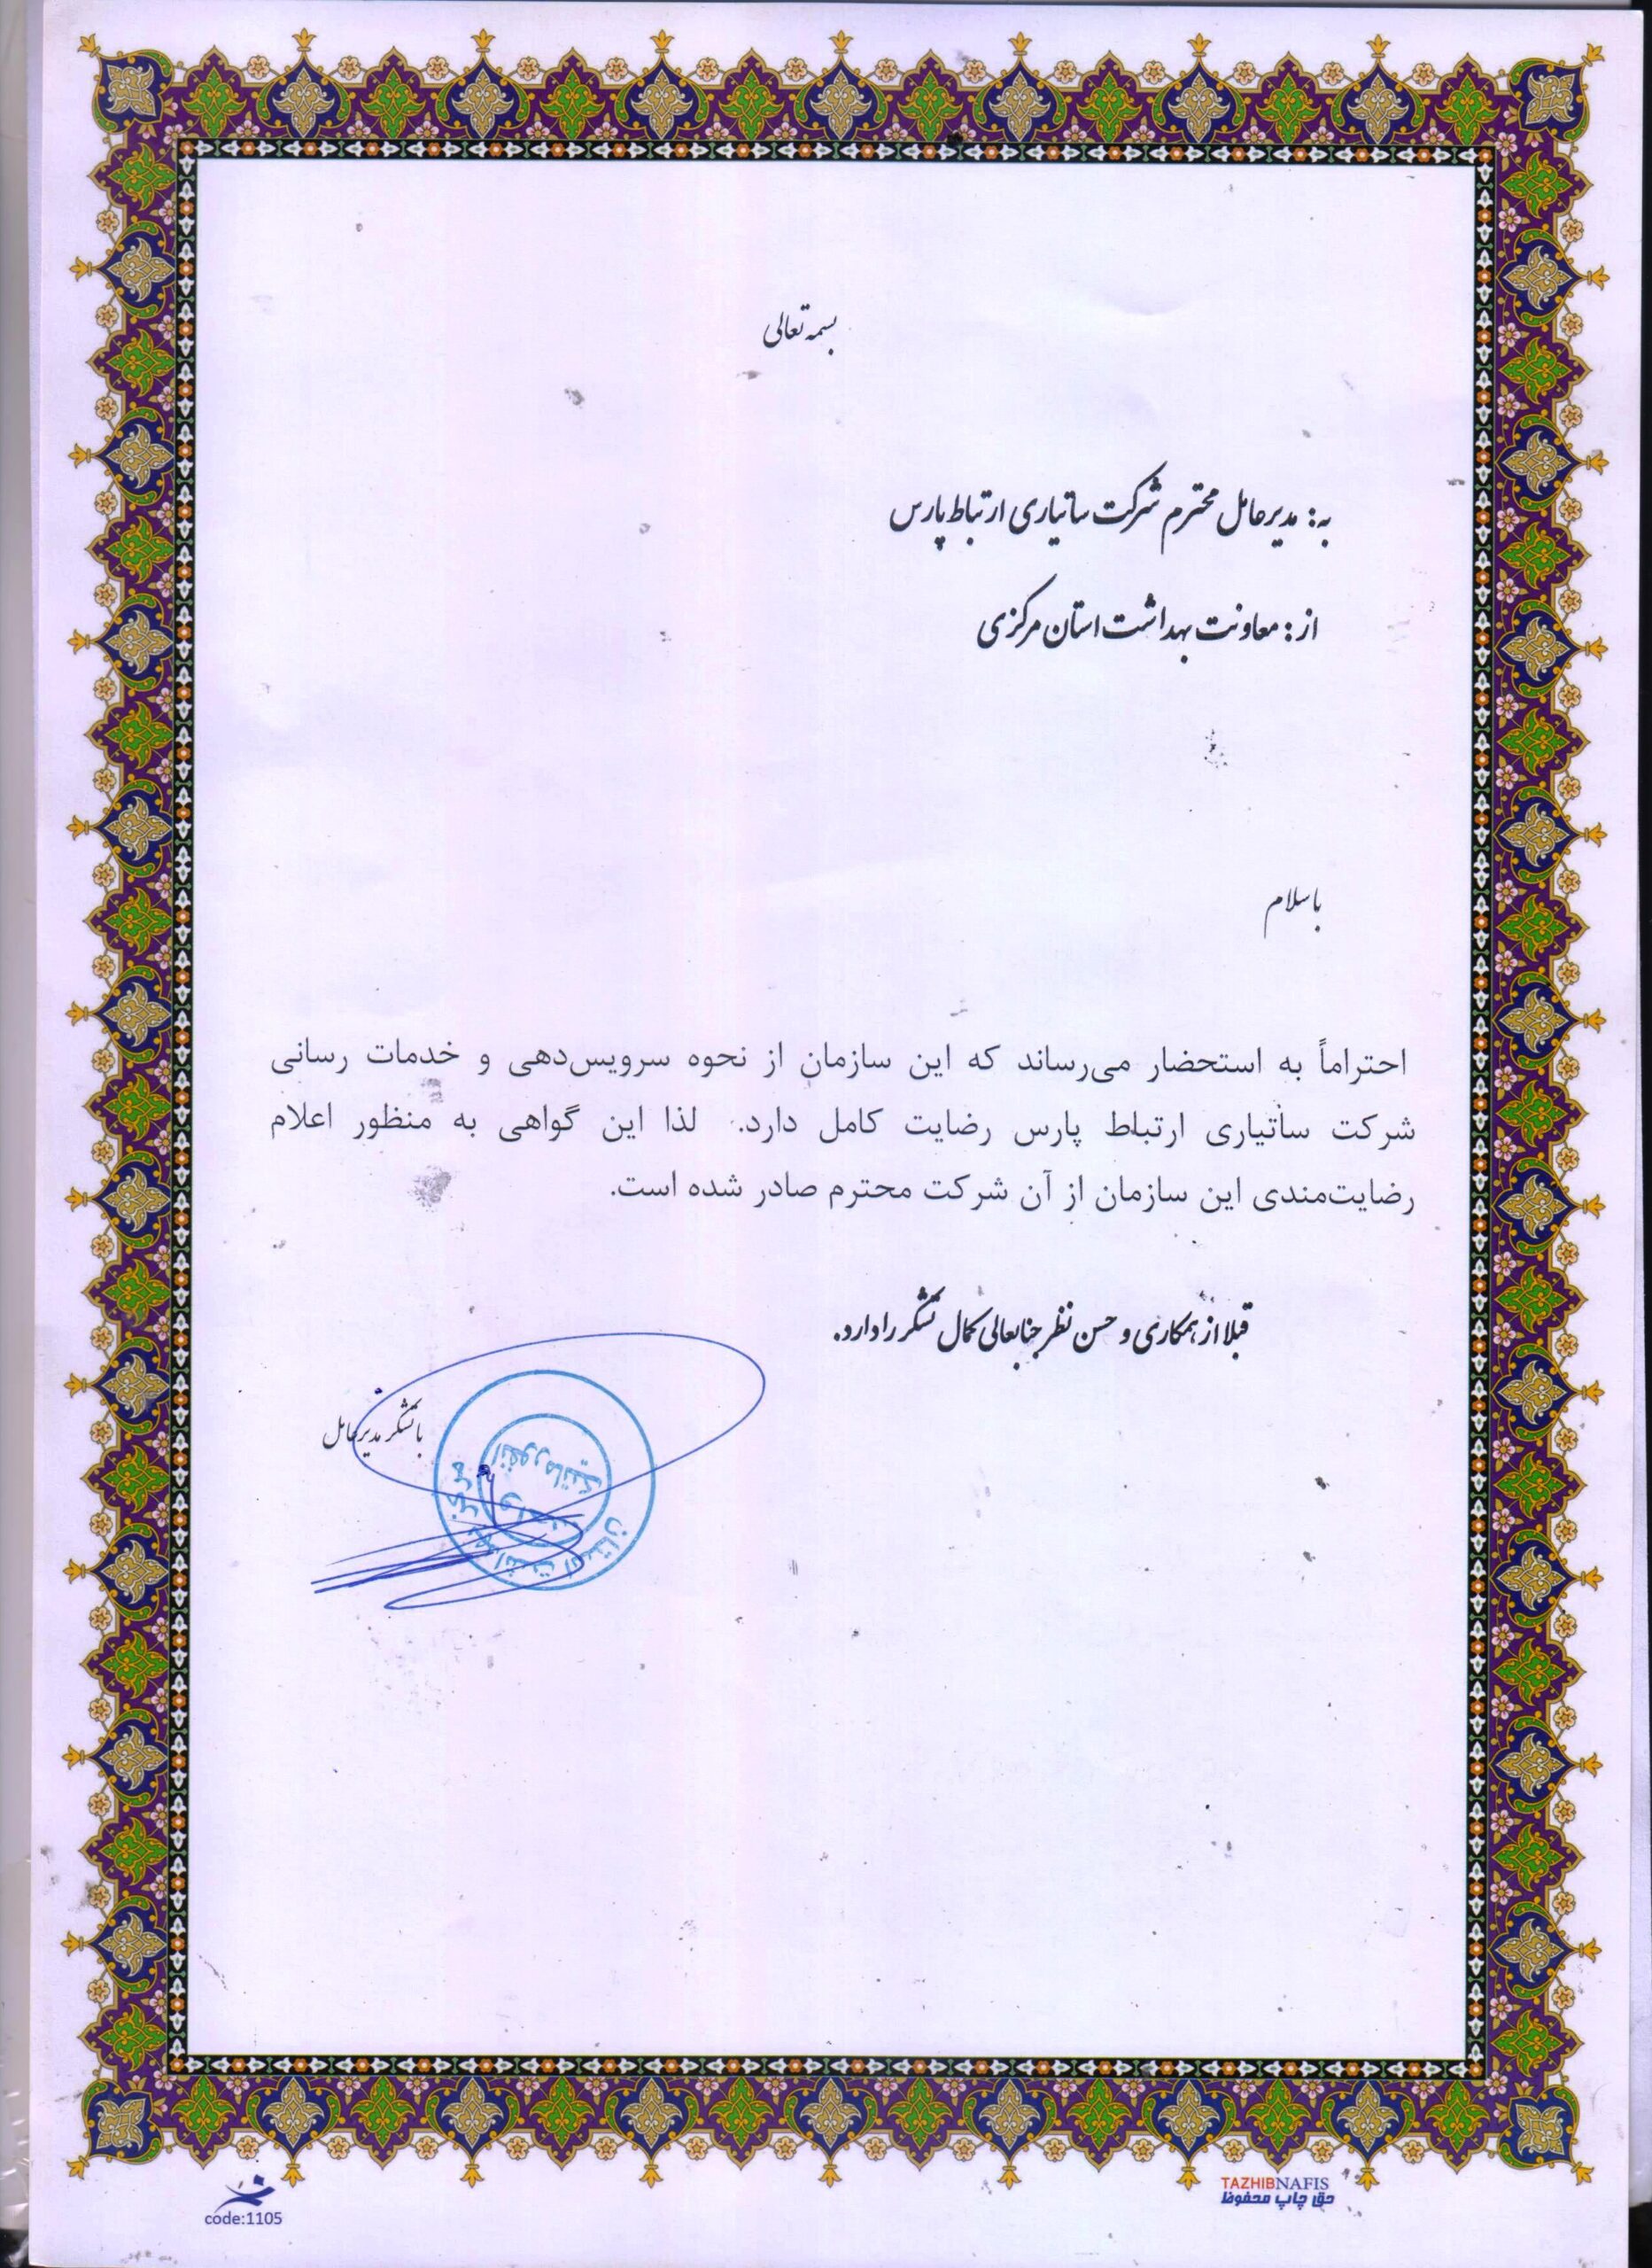 بسمه تعالی
به: مدیرعامل محترم شرکت ساتیاری ارتباط پارس
از: معاونت بهداشت استان مرکزی
باسلام
احتراماً به استحضار می‌رساند که این سازمان از نحوه سرویس‌دهی و خدمات رسانی
شرکت ساتیاری ارتباط پارس رضایت کامل دارد. لذا این گواهی به منظور اعلام
رضایت‌مندی این سازمان از آن شرکت محترم صادر شده است.
قبلا از همکاری و حسن نظر جنابعالی کمال تشکر را دارد.
با تشکر مدیرعامل
انفورماتیک
استان
code:1105
TAZHIBNAFIS
حق چاپ محفوظ